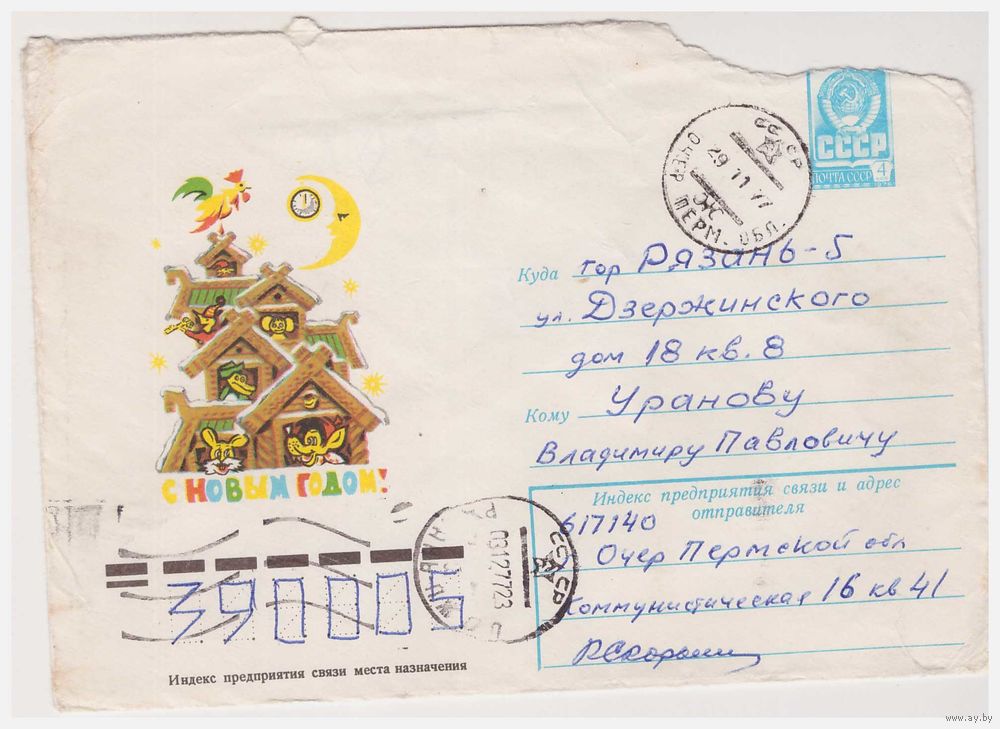 СССР
ПОЧТА СССР 4
СССР
29 11 77
ОЧЕР ПЕРМ. ОБЛ.
Куда гор Рязань-5
ул. Дзержинского
дом 18 кв. 8
Кому Уранову
Владимиру Павловичу
Индекс предприятия связи и адрес
отправителя
617140
Очер Пермской обл
Коммунистическая 16 кв 41
С НОВЫМ ГОДОМ!
СССР
03127723
390005
Индекс предприятия связи места назначения
www.ay.by